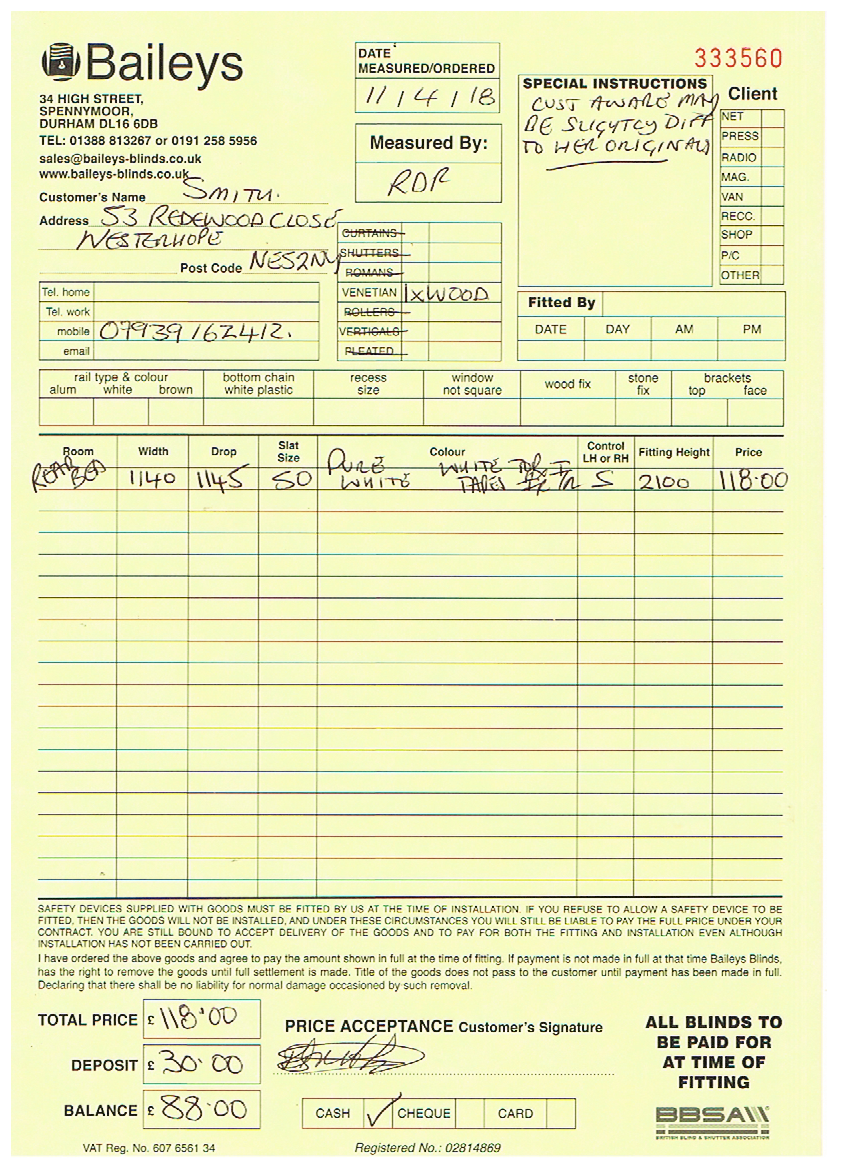 Baileys
34 HIGH STREET,
SPENNYMOOR,
DURHAM DL16 6DB
TEL: 01388 813267 or 0191 258 5956
sales@baileys-blinds.co.uk
www.baileys-blinds.co.uk
DATE
MEASURED/ORDERED
11/4/18
Measured By:
RDR
333560
SPECIAL INSTRUCTIONS
CUST AWARE MAY
BE SLIGTLY DIFF
TO HER ORIGINAL
Client
NET
PRESS
RADIO
MAG.
VAN
RECC.
SHOP
P/C
OTHER
Customer's Name SMITH.
Address 53 REDEWOOD CLOSE
WESTERHOPE
Post Code NE52NY
Tel. home
Tel. work
mobile 07939162412.
email
CURTAINS
SHUTTERS
ROMANS
VENETIAN 1xWOOD
ROLLERS
VERTICALS
PLEATED
Fitted By
DATE DAY AM PM
rail type & colour
alum white brown
bottom chain
white plastic
recess
size
window
not square
wood fix
stone
fix
brackets
top face
Room Width Drop Slat Size Colour Control LH or RH Fitting Height Price
REAR BED 1140 1145 50 PURE WHITE WHITE TAPES S 2100 118.00
SAFETY DEVICES SUPPLIED WITH GOODS MUST BE FITTED BY US AT THE TIME OF INSTALLATION. IF YOU REFUSE TO ALLOW A SAFETY DEVICE TO BE
FITTED, THEN THE GOODS WILL NOT BE INSTALLED, AND UNDER THESE CIRCUMSTANCES YOU WILL STILL BE LIABLE TO PAY THE FULL PRICE UNDER YOUR
CONTRACT. YOU ARE STILL BOUND TO ACCEPT DELIVERY OF THE GOODS AND TO PAY FOR BOTH THE FITTING AND INSTALLATION EVEN ALTHOUGH
INSTALLATION HAS NOT BEEN CARRIED OUT.
I have ordered the above goods and agree to pay the amount shown in full at the time of fitting. If payment is not made in full at that time Baileys Blinds,
has the right to remove the goods until full settlement is made. Title of the goods does not pass to the customer until payment has been made in full.
Declaring that there shall be no liability for normal damage occasioned by such removal.
TOTAL PRICE £ 118.00
DEPOSIT £ 30.00
BALANCE £ 88.00
PRICE ACCEPTANCE Customer's Signature
CASH ✓ CHEQUE CARD
ALL BLINDS TO
BE PAID FOR
AT TIME OF
FITTING
BBSA
BRITISH BLIND & SHUTTER ASSOCIATION
VAT Reg. No. 607 6561 34
Registered No.: 02814869